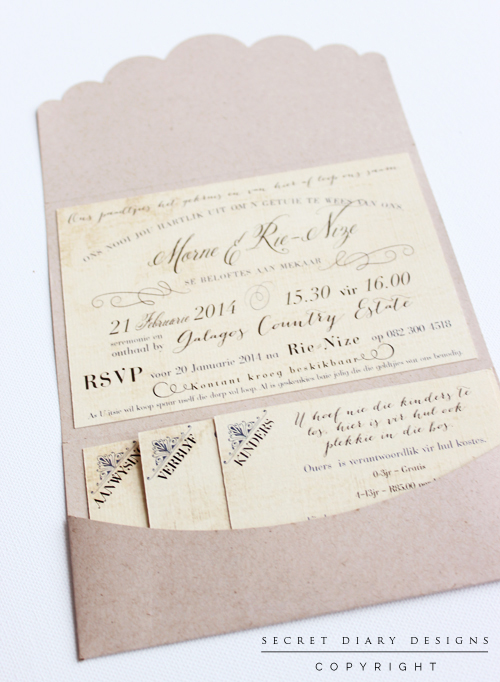 Ons paadjies het gekruis en van hier af loop ons saam.
ONS NOOI JOU HARTLIK UIT OM 'N GETUIE TE WEES VAN ONS
Morne & Rie-Nize
SE BELOFTES AAN MEKAAR
21 Februarie 2014 15.30 vir 16.00
seremonie en
onthaal by Galagos Country Estate
RSVP voor 20 Januarie 2014 na Rie-Nize op 082 300 4518
Kontant kroeg beskikbaar
As U jusie wil koop spring self die dorp vol loop. Al is geskenkies bane jolig dis die geldjies van ons benodig.
AANWYSIN
VERBLYF
KINDERS
U hoef nie die kinders te
los, hier is vir hul ook
plekkie in die bos.
Ouers is verantwoordlik vir hul kostes.
0-3jr - Gratis
4-13jr - R85.00
SECRET DIARY DESIGNS
COPYRIGHT